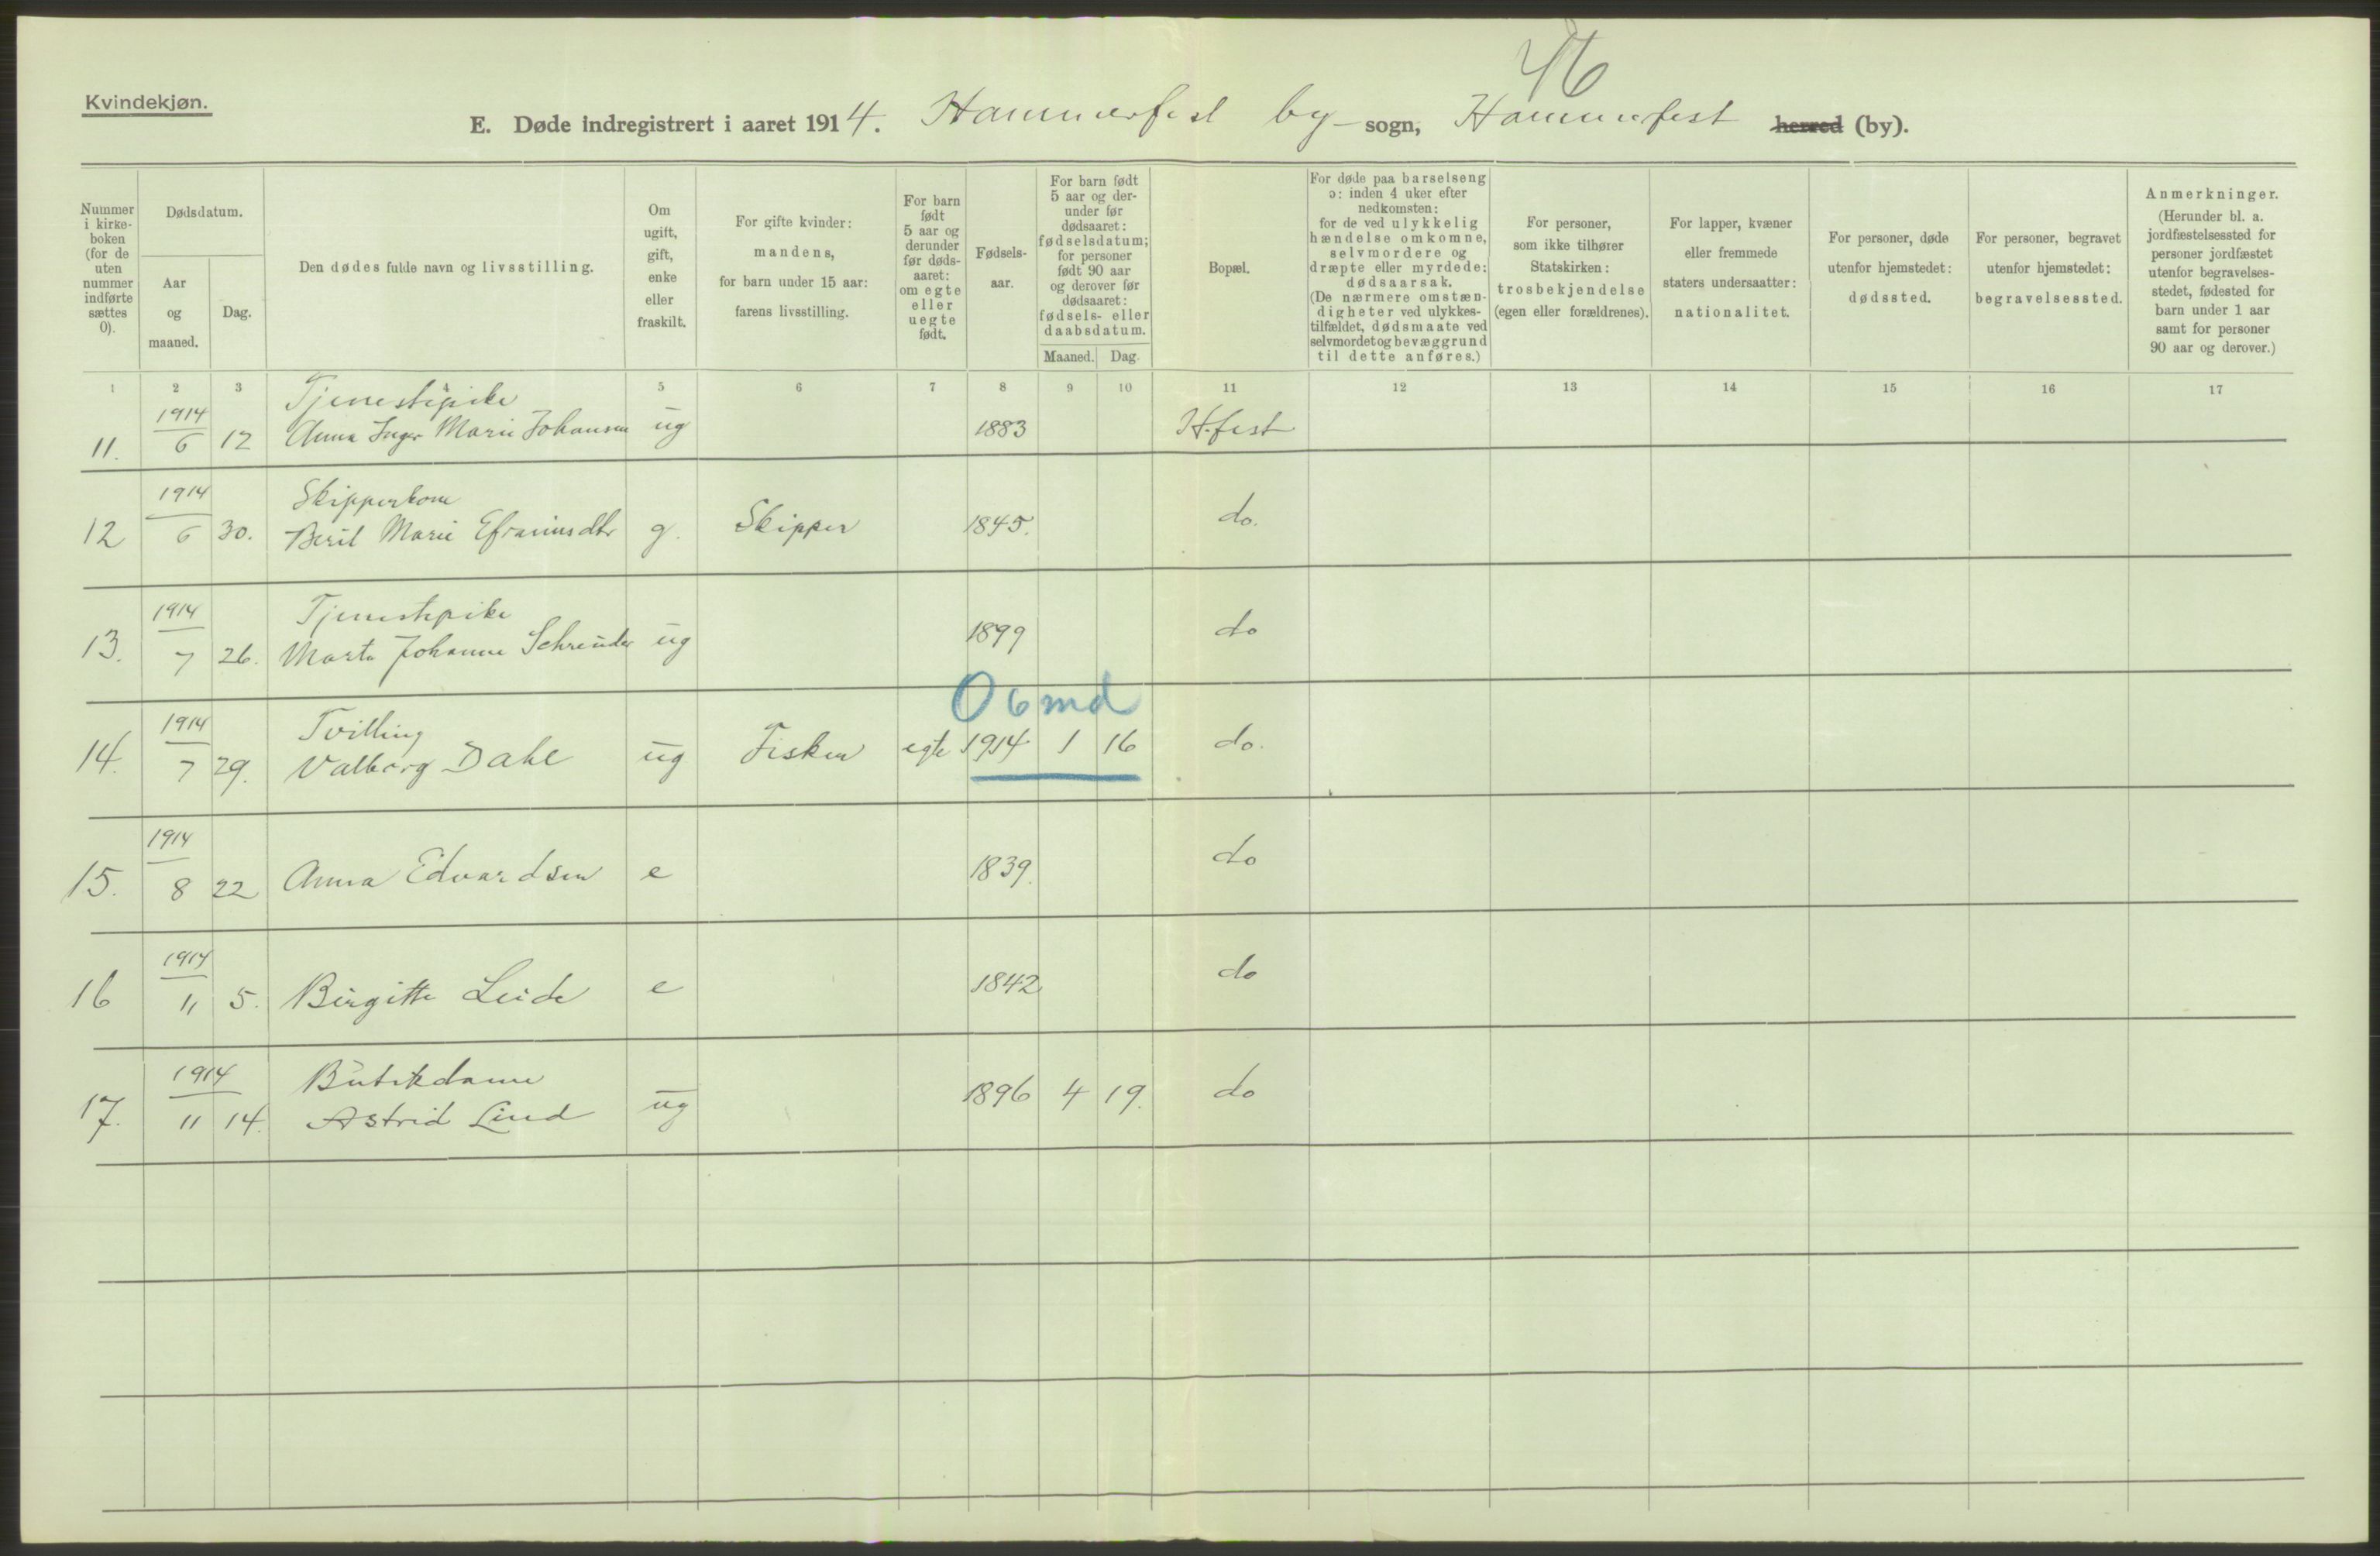 46
Kvindekjøn.
E. Døde indregistrert i aaret 1914. Hammerfest by sogn, Hammerfest herred (by).
Nummer i kirkeboken (for de uten nummer indførte sættes 0).
Dødsdatum.
Aar og maaned.
Dag.
Den dødes fulde navn og livsstilling.
Om ugift, gift, enke eller fraskilt.
For gifte kvinder: mandens, for barn under 15 aar: farens livsstilling.
For barn født 5 aar og derunder før dødsaaret: om egte eller uegte født.
Fødselsaar.
For barn født 5 aar og derunder før dødsaaret: fødselsdatum; for personer født 90 aar og derover før dødsaaret: fødsels- eller daabsdatum.
Maaned.
Dag.
Bopæl.
For døde paa barselseng ɔ: inden 4 uker efter nedkomsten: for de ved ulykkelig hændelse omkomne, selvmordere og dræpte eller myrdede: dødsaarsak. (De nærmere omstændigheter ved ulykkestilfældet, dødsmaate ved selvmordet og bevæggrund til dette anføres.)
For personer, som ikke tilhører Statskirken: trosbekjendelse (egen eller forældrenes).
For lapper, kvæner eller fremmede staters undersaatter: nationalitet.
For personer, døde utenfor hjemstedet: dødssted.
For personer, begravet utenfor hjemstedet: begravelsessted.
Anmerkninger. (Herunder bl. a. jordfæstelsessted for personer jordfæstet utenfor begravelsesstedet, fødested for barn under 1 aar samt for personer 90 aar og derover.)
1 2 3 5 6 7 8 9 10 11 12 13 14 15 16 17
1914 Tjenestepike
11. 6 12 Anna Inger Marie Johansen ug 1883 H.fest
1914 Skipperkone
12 6 30. Beril Marie Efraimsdtr g. Skipper 1845. do.
1914 Tjenestepike
13. 7 26. Marta Johanne Schreuder ug 1899 do
0 6 md
1914 Tvilling
14. 7 29. Valborg Dahl ug Fisker egte 1914 1 16 do.
1914
15. 8 22 Anna Edvardsen e 1839. do
1914
16 11 5. Birgitte Leide e 1842 do
1914 Butikdame
17. 11 14. Astrid Lind ug 1896 4 19. do